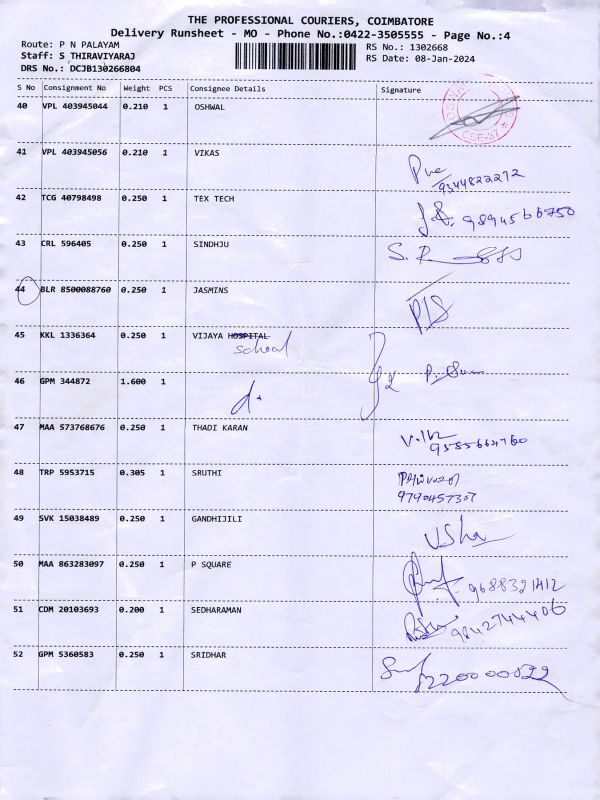 THE PROFESSIONAL COURIERS, COIMBATORE
Delivery Runsheet - MO - Phone No.:0422-3505555 - Page No.:4
Route: P N PALAYAM
Staff: S THIRAVIYARAJ
DRS No.: DCJB130266804
RS No.: 1302668
RS Date: 08-Jan-2024
S No Consignment No Weight PCS Consignee Details Signature
40 VPL 403945044 0.210 1 OSHWAL
CBE-37
41 VPL 403945056 0.210 1 VIKAS
9344822272
42 TCG 40798498 0.250 1 TEX TECH
9894566750
43 CRL 596405 0.250 1 SINDHJU
44 BLR 8500088760 0.250 1 JASMINS
45 KKL 1336364 0.250 1 VIJAYA HOSPITAL
school
46 GPM 344872 1.600 1
47 MAA 573768676 0.250 1 THADI KARAN
9585664760
48 TRP 5953715 0.305 1 SRUTHI
9790457307
49 SVK 15038489 0.250 1 GANDHIJILI
Usha
50 MAA 863283097 0.250 1 P SQUARE
9688321412
51 CDM 20103693 0.200 1 SEDHARAMAN
9842744406
52 GPM 5360583 0.250 1 SRIDHAR